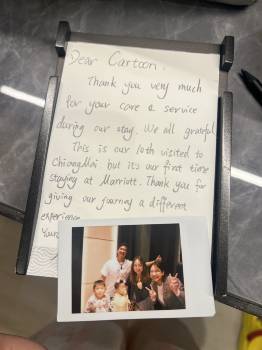 Dear Cartoon,
Thank you very much
for your care & service
during our stay. We all grateful
This is our 10th visited to
ChiangMai but it's our first time
staying at Marriott. Thank you for
giving our journey a different
experience